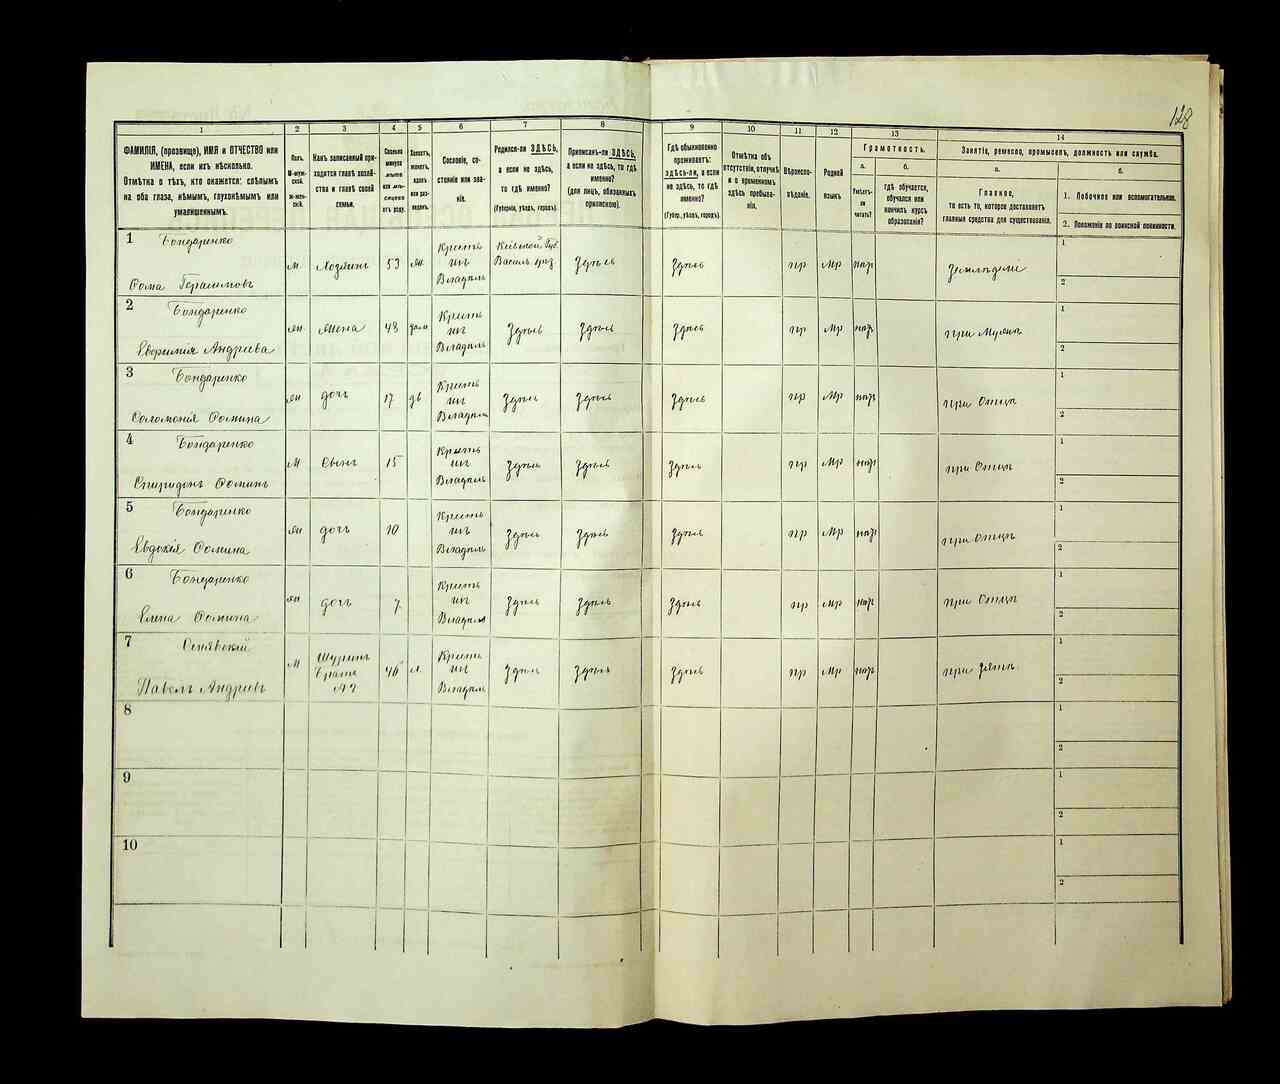 128
1 2 3 4 5 6 7 8 9 10 11 12 13 14
ФАМИЛІЯ, (прозвище), ИМЯ и ОТЧЕСТВО или ИМЕНА, если ихъ нѣсколько.
Отмѣтка о тѣхъ, кто окажется: слѣпымъ на оба глаза, нѣмымъ, глухонѣмымъ или умалишеннымъ.
Полъ.
М-мужской.
Ж-женскій.
Какъ записанный приходится главѣ хозяйства и главѣ своей семьи.
Сколько минуло лѣтъ или мѣсяцевъ отъ роду.
Холостъ, женатъ, вдовъ или разведенъ.
Сословіе, состояніе или званіе.
Родился-ли ЗДѢСЬ, а если не здѣсь, то гдѣ именно?
(Губернія, уѣздъ, городъ).
Приписанъ-ли ЗДѢСЬ, а если не здѣсь, то гдѣ именно?
(для лицъ, обязанныхъ припискою).
Гдѣ обыкновенно проживаетъ: здѣсь-ли, а если не здѣсь, то гдѣ именно?
(Губер., уѣздъ, городъ).
Отмѣтка объ отсутствіи, отлучкѣ и о временномъ здѣсь пребываніи.
Вѣроисповѣданіе.
Родной языкъ
Грамотность.
а.
Умѣетъ-ли читать?
б.
гдѣ обучается, обучался или кончилъ курсъ образованія?
Занятіе, ремесло, промыселъ, должность или служба.
а.
Главное,
то есть то, которое доставляетъ главныя средства для существованія.
б.
1. Побочное или вспомогательное.
2. Положеніе по воинской повинности.
1 Бондаренко
Ѳома Герасимовъ М Хозяинъ 53 жн Крестьнъ Владѣль Кіевской Губ. Василь уѣз. Здѣсь Здѣсь пр Мр Земледѣліе 1 2
2 Бондаренко
Евфимія Андріева жн Жена 48 Крестьнъ Владѣль Здѣсь Здѣсь Здѣсь пр Мр при Мужѣ 1 2
3 Бондаренко
Соломонія Ѳомина жн дочь 17 дѣ Крестьнъ Владѣль Здѣсь Здѣсь Здѣсь пр Мр при Отцѣ 1 2
4 Бондаренко
Спиридонъ Ѳоминъ М Сынъ 15 Крестьнъ Владѣль Здѣсь Здѣсь Здѣсь пр Мр при Отцѣ 1 2
5 Бондаренко
Евдокія Ѳомина жн дочь 10 Крестьнъ Владѣль Здѣсь Здѣсь Здѣсь пр Мр при Отцѣ 1 2
6 Бондаренко
Елена Ѳомина жн дочь 7 Крестьнъ Владѣль Здѣсь Здѣсь Здѣсь пр Мр при Отцѣ 1 2
7 Сенявскій
Павелъ Андріевъ М Шуринъ Братъ №2 46 Крестьнъ Владѣль Здѣсь Здѣсь Здѣсь пр Мр при Зятѣ 1 2
8 1 2
9 1 2
10 1 2